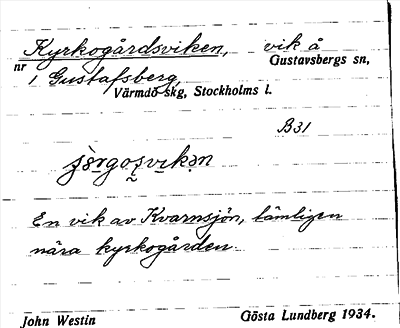 Kyrkogårdsviken, vik å
nr 1 Gustafsberg, Gustavsbergs sn,
Värmdö skg, Stockholms l.
B31
En vik av Kvarnsjön, lämligen
nära kyrkogården
John Westin Gösta Lundberg 1934.